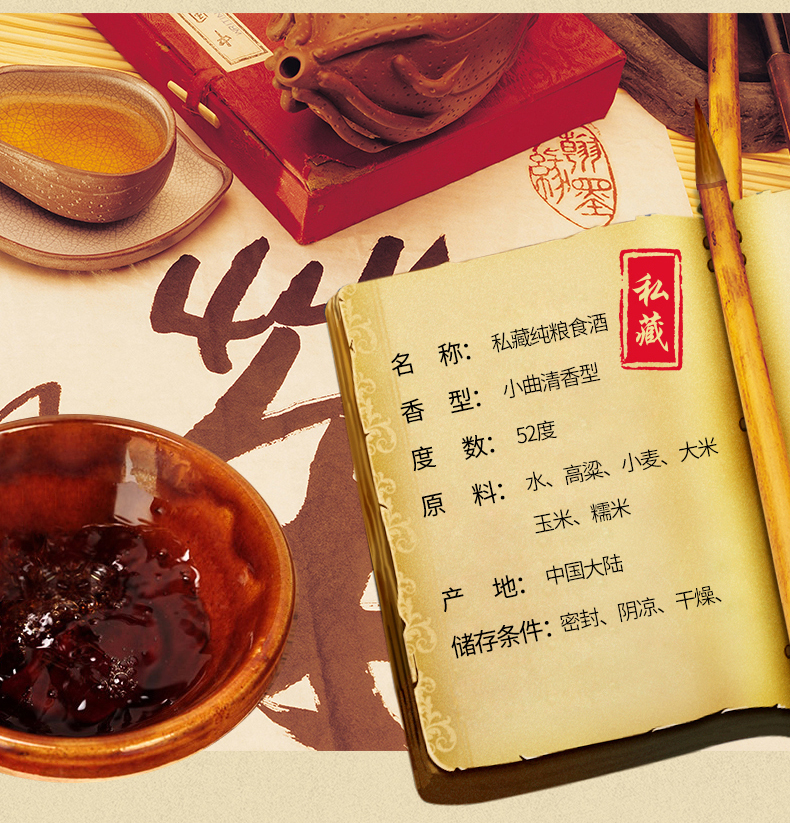 翰墨
私藏
名 称：私藏纯粮食酒
香 型：小曲清香型
度 数：52度
原 料：水、高粱、小麦、大米
玉米、糯米
产 地：中国大陆
储存条件：密封、阴凉、干燥、